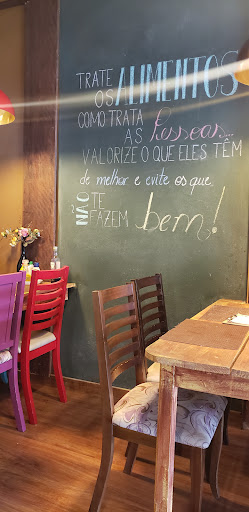 TRATE
OS ALIMENTOS
COMO TRATA
AS Pessoas...
VALORIZE O QUE ELES TÊM
de melhor e evite os que
NÃO TE
FAZEM bem!